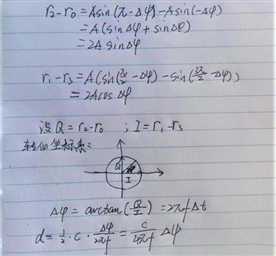 r₂-r₀ = Asin(π-Δφ)-Asin(-Δφ)
= A(sinΔφ+sinΔθ)
= 2A sinΔφ
r₁-r₃ = A(sin(π/2-Δφ)-sin(3π/2-Δφ))
= 2Acos Δφ
设 Q = r₂-r₀ ; I = r₁-r₃
坐标系:
Q
I
Δφ = arctan(Q/I) = 2πfΔt
d = 1/2 · c · Δφ/2πf = c/4πf Δφ